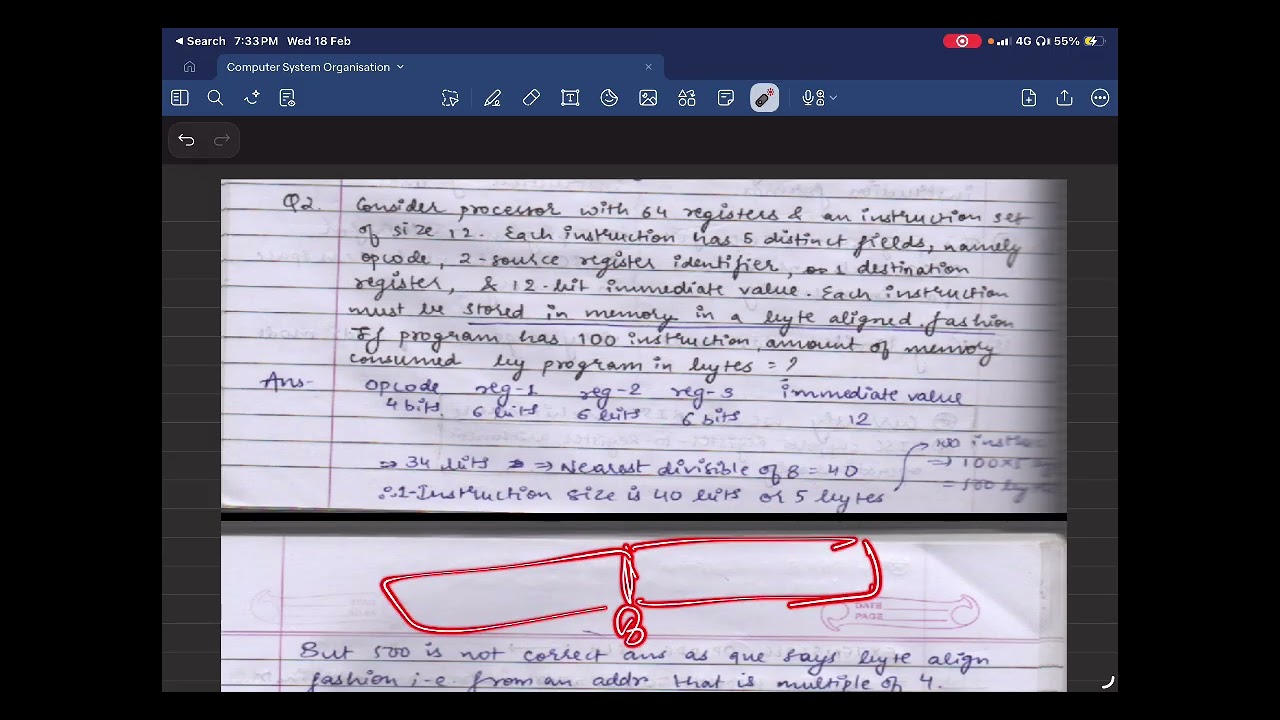 Search 7:33 PM Wed 18 Feb 4G 55%
Computer System Organisation
Q2. Consider processor with 64 registers & an instruction set
of size 12. Each instruction has 5 distinct fields, namely
opcode, 2-source register identifier, 1 destination
register, & 12-bit immediate value. Each instruction
must be stored in memory in a byte aligned fashion
If program has 100 instruction, amount of memory
consumed by program in bytes = ?
Ans- opcode reg-1 reg-2 reg-3 immediate value
4 bits 6 bits 6 bits 6 bits 12
⇒ 34 bits ⇒ Nearest divisible of 8 = 40
∴ 1-Instruction size is 40 bits or 5 bytes
100 instr
⇒ 100×5
= 500 by
DATE
PAGE
But 500 is not correct ans as que says byte align
fashion i.e. from an addr that is multiple of 4.